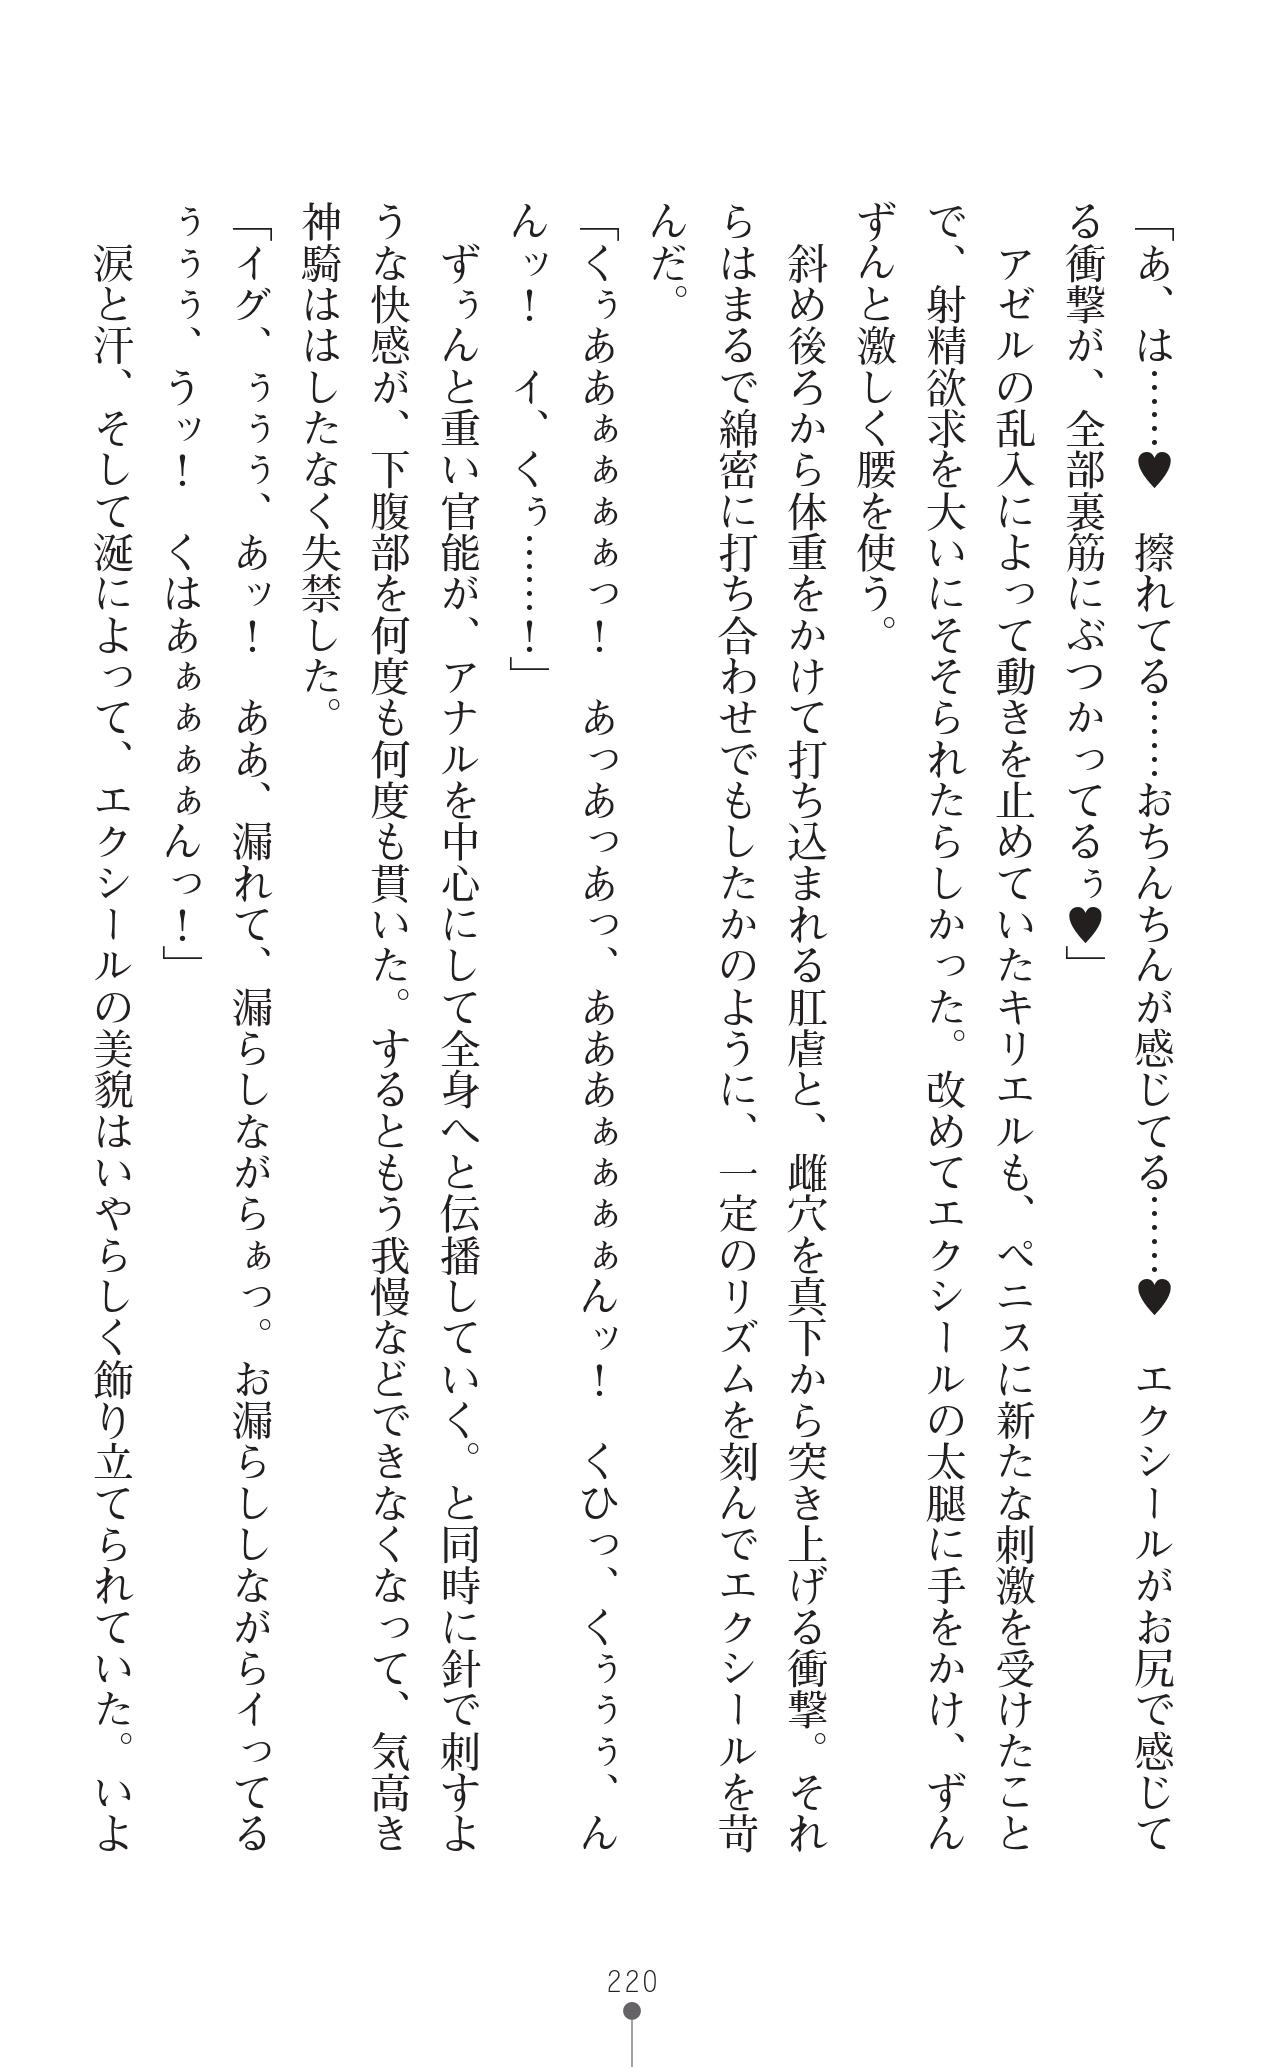 「あ、は……♥　擦れてる……おちんちんが感じてる……♥　エクシールがお尻で感じて
る衝撃が、全部裏筋にぶつかってるぅ♥」
　アゼルの乱入によって動きを止めていたキリエルも、ペニスに新たな刺激を受けたこと
で、射精欲求を大いにそそられたらしかった。改めてエクシールの太腿に手をかけ、ずん
ずんと激しく腰を使う。
　斜め後ろから体重をかけて打ち込まれる肛虐と、雌穴を真下から突き上げる衝撃。それ
らはまるで綿密に打ち合わせでもしたかのように、一定のリズムを刻んでエクシールを苛
んだ。
「くぅああぁぁぁぁっ！　あっあっあっ、あああぁぁぁぁんッ！　くひっ、くぅぅぅ、ん
んッ！　イ、くぅ……！」
　ずぅんと重い官能が、アナルを中心にして全身へと伝播していく。と同時に針で刺すよ
うな快感が、下腹部を何度も何度も貫いた。するともう我慢などできなくなって、気高き
神騎ははしたなく失禁した。
「イグ、ぅぅぅ、あッ！　ああ、漏れて、漏らしながらぁっ。お漏らししながらイってる
ぅぅぅ、うッ！　くはあぁぁぁぁんっ！」
　涙と汗、そして涎によって、エクシールの美貌はいやらしく飾り立てられていた。いよ
220